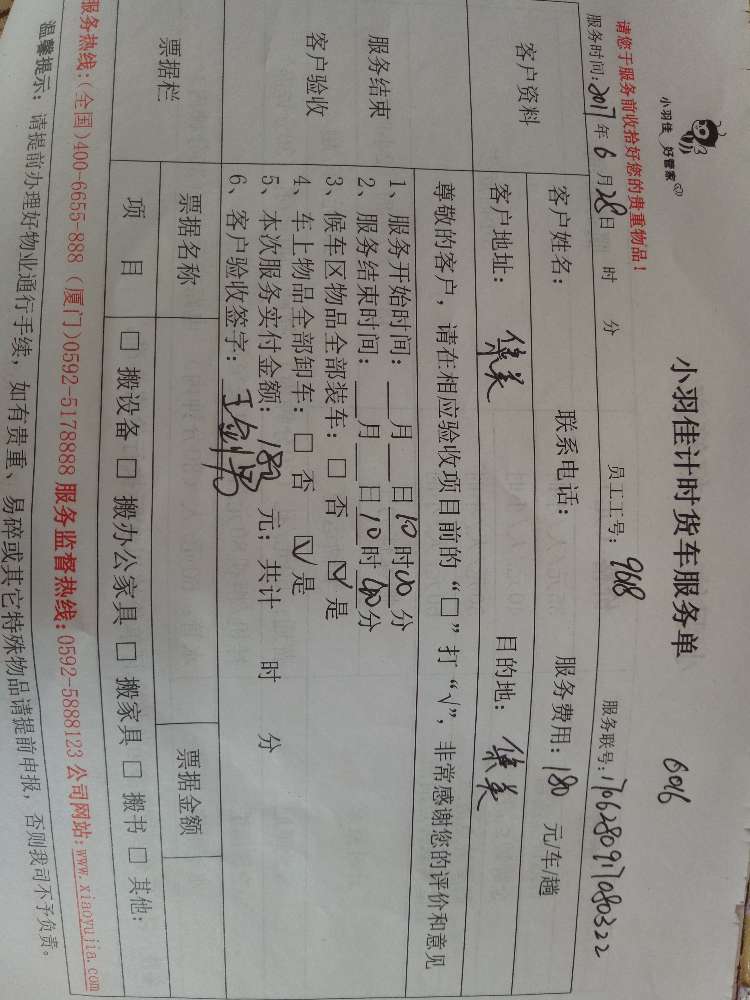 小羽佳 好管家
小羽佳计时货车服务单
6016
请您于服务前收拾好您的贵重物品！
服务时间：2017年6月28日 时 分 员工工号：9618 服务联号：1706280917080322
客户资料
客户姓名： 联系电话： 服务费用：180 元/车/趟
客户地址：集美 目的地：集美
服务结束
客户验收
尊敬的客户，请在相应验收项目前的“□”打“√”，非常感谢您的评价和意见
1、服务开始时间：__月__日10时00分
2、服务结束时间：__月__日10时60分
3、候车区物品全部装车：□ 否 ☑ 是
4、车上物品全部卸车：□ 否 ☑ 是
5、本次服务实付金额：180 元；共计 时 分
6、客户验收签字：
票据栏
票据名称 票据金额
项 目 □ 搬设备 □ 搬办公家具 □ 搬家具 □ 搬书 □ 其他：
服务热线：(全国)400-6655-888 (厦门)0592-5178888 服务监督热线：0592-5888123 公司网站：www.xiaoyujia.com
温馨提示：请提前办理好物业通行手续，如有贵重、易碎或其它特殊物品请提前申报，否则我司不予负责。